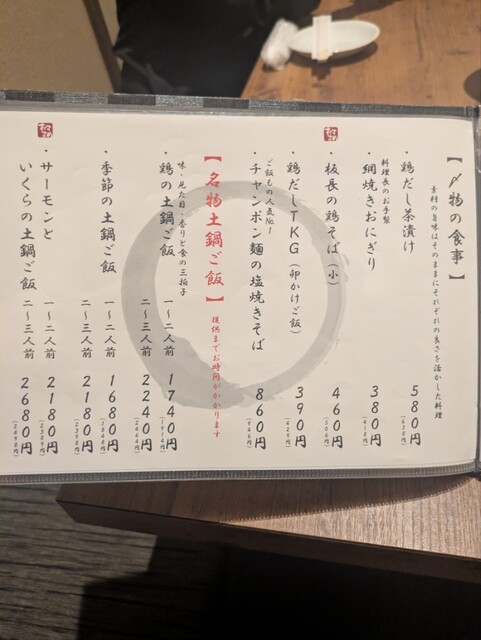 【〆物の食事】
素材の旨味はそのままにそれぞれの良さを活かした料理
・鶏だし茶漬け 580円
(638円)
料理長のお手製
・網焼きおにぎり 380円
(418円)
・板長の鶏そば（小） 460円
(506円)
・鶏だしTKG（卵かけご飯） 390円
(429円)
ご飯もの人気No.1
・チャンポン麺の塩焼きそば 860円
(946円)
【名物土鍋ご飯】提供までお時間がかかります
味・見た目・香りと食の三拍子
・鶏の土鍋ご飯 一〜二人前 1740円
(1914円)
二〜三人前 2240円
(2464円)
・季節の土鍋ご飯 一〜二人前 1680円
(1848円)
二〜三人前 2180円
(2398円)
・サーモンと
いくらの土鍋ご飯 一〜二人前 2180円
(2398円)
二〜三人前 2680円
(2948円)